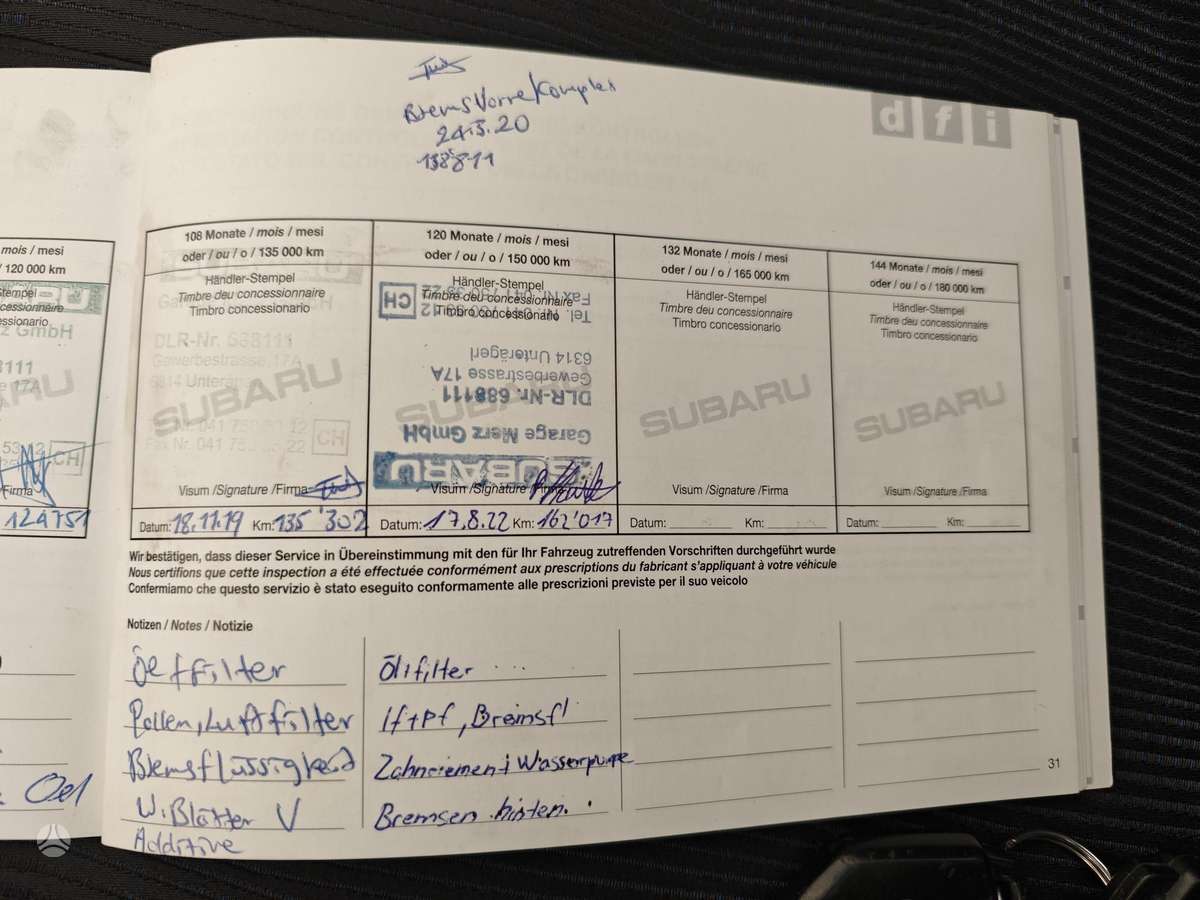 Bremse Vorne komplet
24.3.20
138'811
dfi
mois / mesi
/ 120 000 km
108 Monate / mois / mesi
oder / ou / o / 135 000 km
120 Monate / mois / mesi
oder / ou / o / 150 000 km
132 Monate / mois / mesi
oder / ou / o / 165 000 km
144 Monate / mois / mesi
oder / ou / o / 180 000 km
Händler-Stempel
Timbre deu concessionnaire
Timbro concessionario
DLR-Nr. 688111
Gewerbestrasse 17A
SUBARU
CH
Visum /Signature /Firma
Datum: 18.11.19 Km: 135'302
Händler-Stempel
Timbre deu concessionnaire
Timbro concessionario
CH
6314 Unterägeri
Gewerbestrasse 17A
DLR-Nr. 688111
Garage Merz GmbH
SUBARU
SUBARU
Visum /Signature /Firma
Datum: 17.8.22 Km: 162'017
Händler-Stempel
Timbre deu concessionnaire
Timbro concessionario
SUBARU
Visum /Signature /Firma
Datum: Km:
Händler-Stempel
Timbre deu concessionnaire
Timbro concessionario
SUBARU
Visum /Signature /Firma
Datum: Km:
CH
Firma
124751
Wir bestätigen, dass dieser Service in Übereinstimmung mit den für Ihr Fahrzeug zutreffenden Vorschriften durchgeführt wurde
Nous certifions que cette inspection a été effectuée conformément aux prescriptions du fabricant s'appliquant à votre véhicule
Confermiamo che questo servizio è stato eseguito conformamente alle prescrizioni previste per il suo veicolo
Notizen / Notes / Notizie
Oel+filter
Pollen, Luftfilter
Bremsflüssigkeid
W. Blätter V
Additive
Öl+filter
lf+pf, Bremsfl
Zahnriemen+Wasserpumpe
Bremsen hinten.
Oel
31